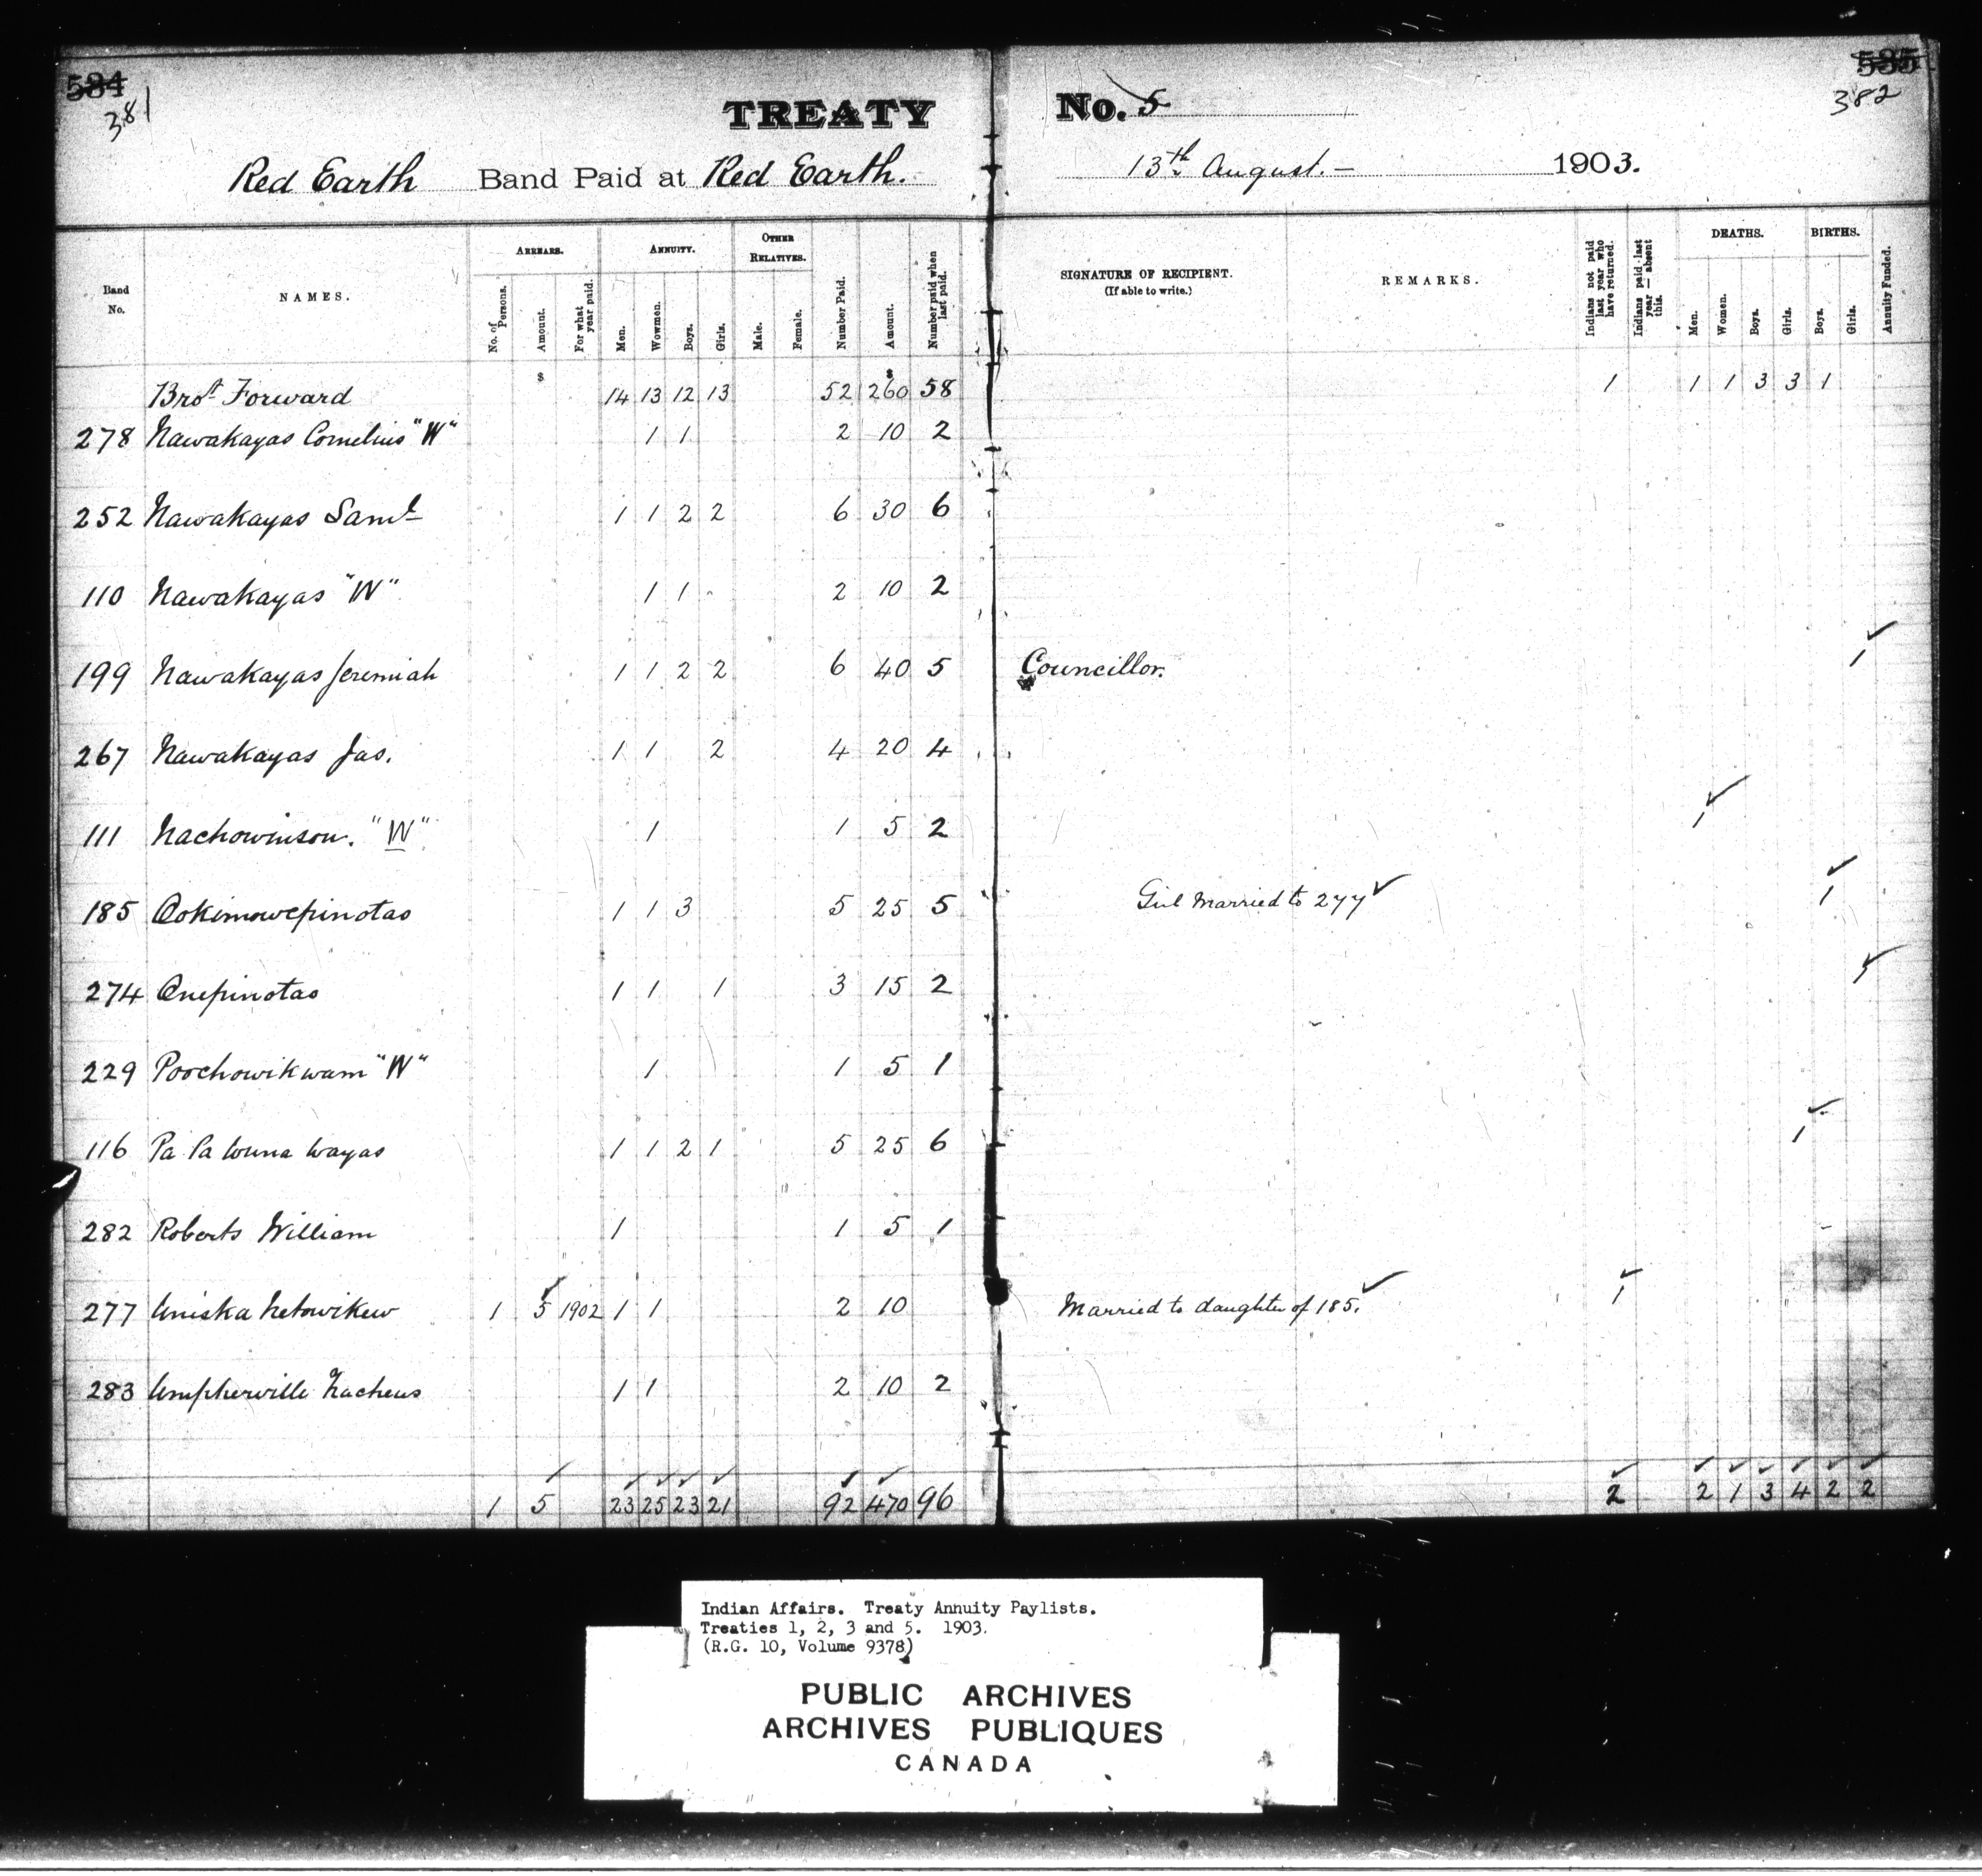 534 535
381 382
TREATY No. 5
Red Earth Band Paid at Red Earth. 13th August. — 1903.
Band No. NAMES. ARREARS. ANNUITY. OTHER RELATIVES. Number Paid. Amount. Number paid when last paid. SIGNATURE OF RECIPIENT. (If able to write.) REMARKS. Indians not paid last year who have returned. Indians paid last year — absent this. DEATHS. BIRTHS. Annuity Funded.
No. of Persons. Amount. For what year paid. Men. Wowmen. Boys. Girls. Male. Female. Men. Women. Boys. Girls. Boys. Girls.
$ $
Brot Forward 14 13 12 13 52 260 58 1 1 1 3 3 1
278 Nawakayas Cornelius "W" 1 1 2 10 2
252 Nawakayas Saml 1 1 2 2 6 30 6
110 Nawakayas "W" 1 1 2 10 2
199 Nawakayas Jeremiah 1 1 2 2 6 40 5 Councillor. 1
267 Nawakayas Jas. 1 1 2 4 20 4
111 Nachowinson. "W" 1 1 5 2 1
185 Ookimowepinotas 1 1 3 5 25 5 Girl Married to 277 1
274 Onepinotas 1 1 1 3 15 2 1
229 Poochowikwam "W" 1 1 5 1
116 Pa Pa wuna wayas 1 1 2 1 5 25 6 1
282 Roberts William 1 1 5 1
277 Uniska Netowikew 1 5 1902 1 1 2 10 Married to daughter of 185. 1
283 Umpherville Zacheus 1 1 2 10 2
1 5 23 25 23 21 92 470 96 2 2 1 3 4 2 2
Indian Affairs. Treaty Annuity Paylists.
Treaties 1, 2, 3 and 5. 1903.
(R.G. 10, Volume 9378)
PUBLIC ARCHIVES
ARCHIVES PUBLIQUES
CANADA